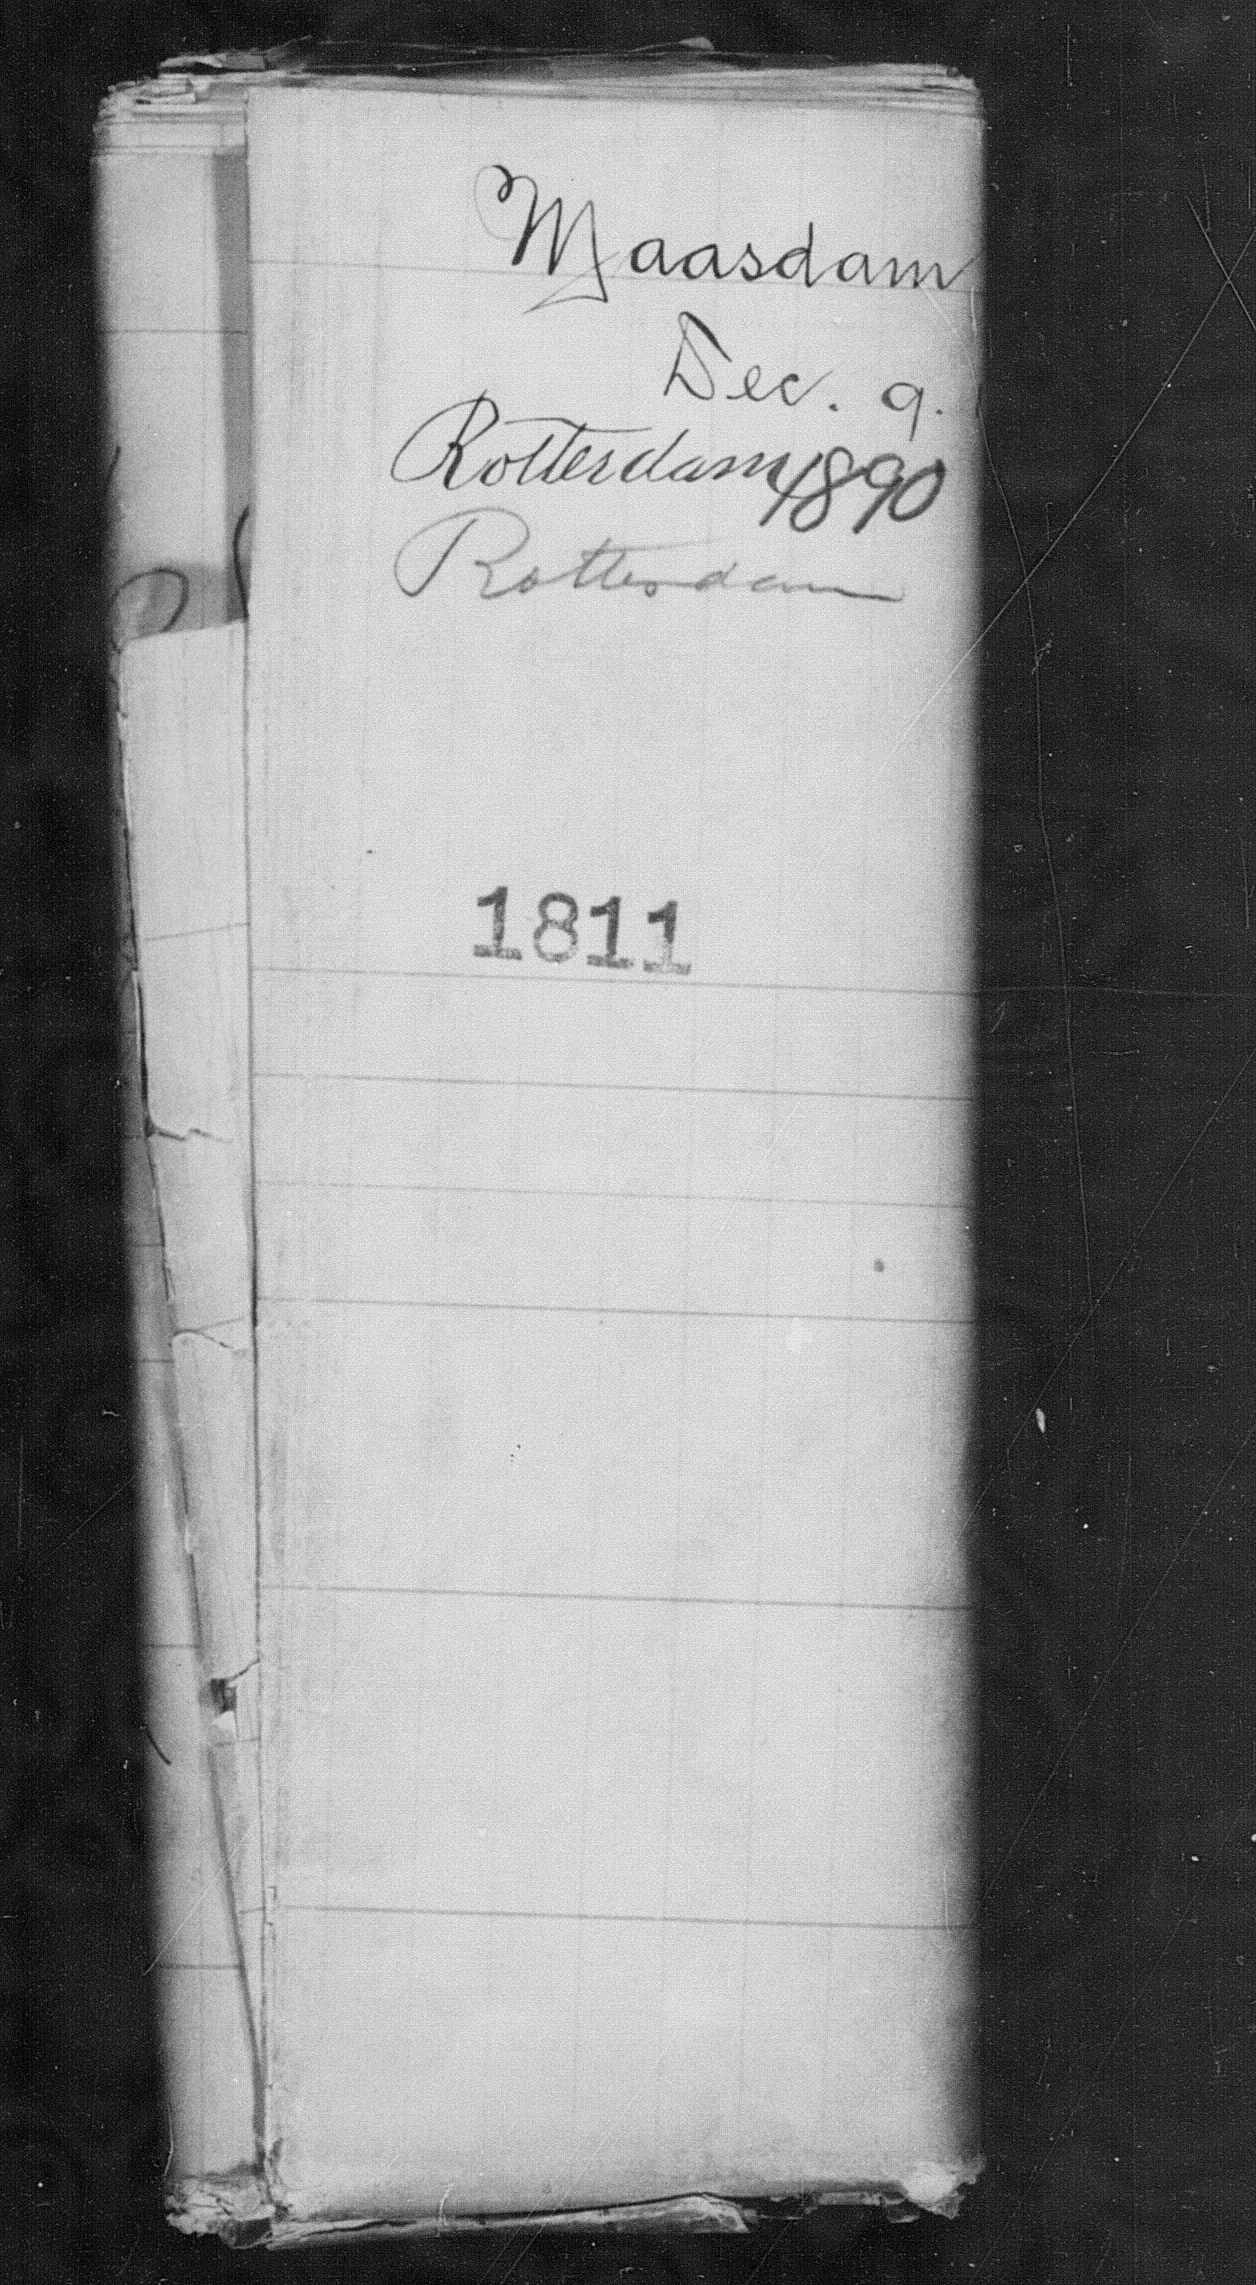 Maasdam
Dec. 9.
Rotterdam 1890
Rotterdam
1811